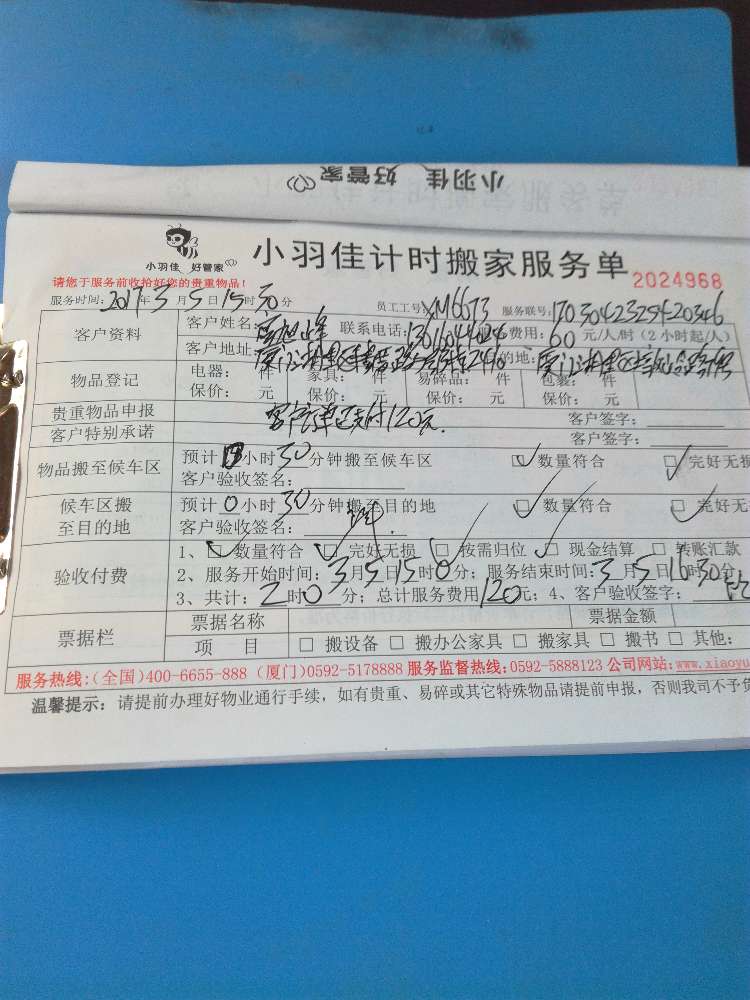 小羽佳 好管家
小羽佳 好管家
小羽佳计时搬家服务单 2024968
请您于服务前收拾好您的贵重物品!
服务时间: 2017年3月5日15时 分 员工工号: XM6673 服务联号: 1703042325420346
客户资料 客户姓名: 联系电话: 费用: 60 元/人/时(2小时起/人)
客户地址: 的地:
物品登记 电器: 件 家具: 件 易碎品: 件 包装: 件
保价: 元 保价: 元 保价: 元 保价: 元
贵重物品申报 客户签字:
客户特别承诺 支付120元. 客户签字:
物品搬至候车区 预计 小时30分钟搬至候车区 数量符合 完好无损
客户验收签名:
候车区搬至目的地 预计0小时30分钟搬至目的地 数量符合 完好无
客户验收签名:
验收付费 1、 数量符合 完好无损 按需归位 现金结算 转账汇款
2、服务开始时间: 3月5日15时0分; 服务结束时间: 3月5日16时30分;
3、共计: 2时0分; 总计服务费用120元; 4、客户验收签字:
票据栏 票据名称 票据金额
项 目 搬设备 搬办公家具 搬家具 搬书 其他:
服务热线:(全国)400-6655-888 (厦门)0592-5178888 服务监督热线:0592-5888123 公司网站:www.xiaoyu
温馨提示: 请提前办理好物业通行手续,如有贵重、易碎或其它特殊物品请提前申报,否则我司不予